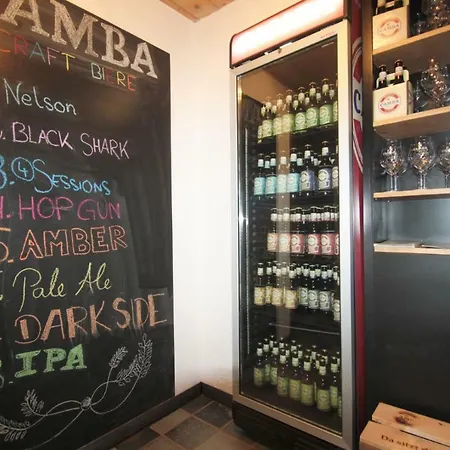 AMBA
CRAFT BIERE
Nelson
BLACK SHARK
3. ④ SESSIONS
HOP GUN
5. AMBER
Pale Ale
DARKSIDE
IPA
CAMBA